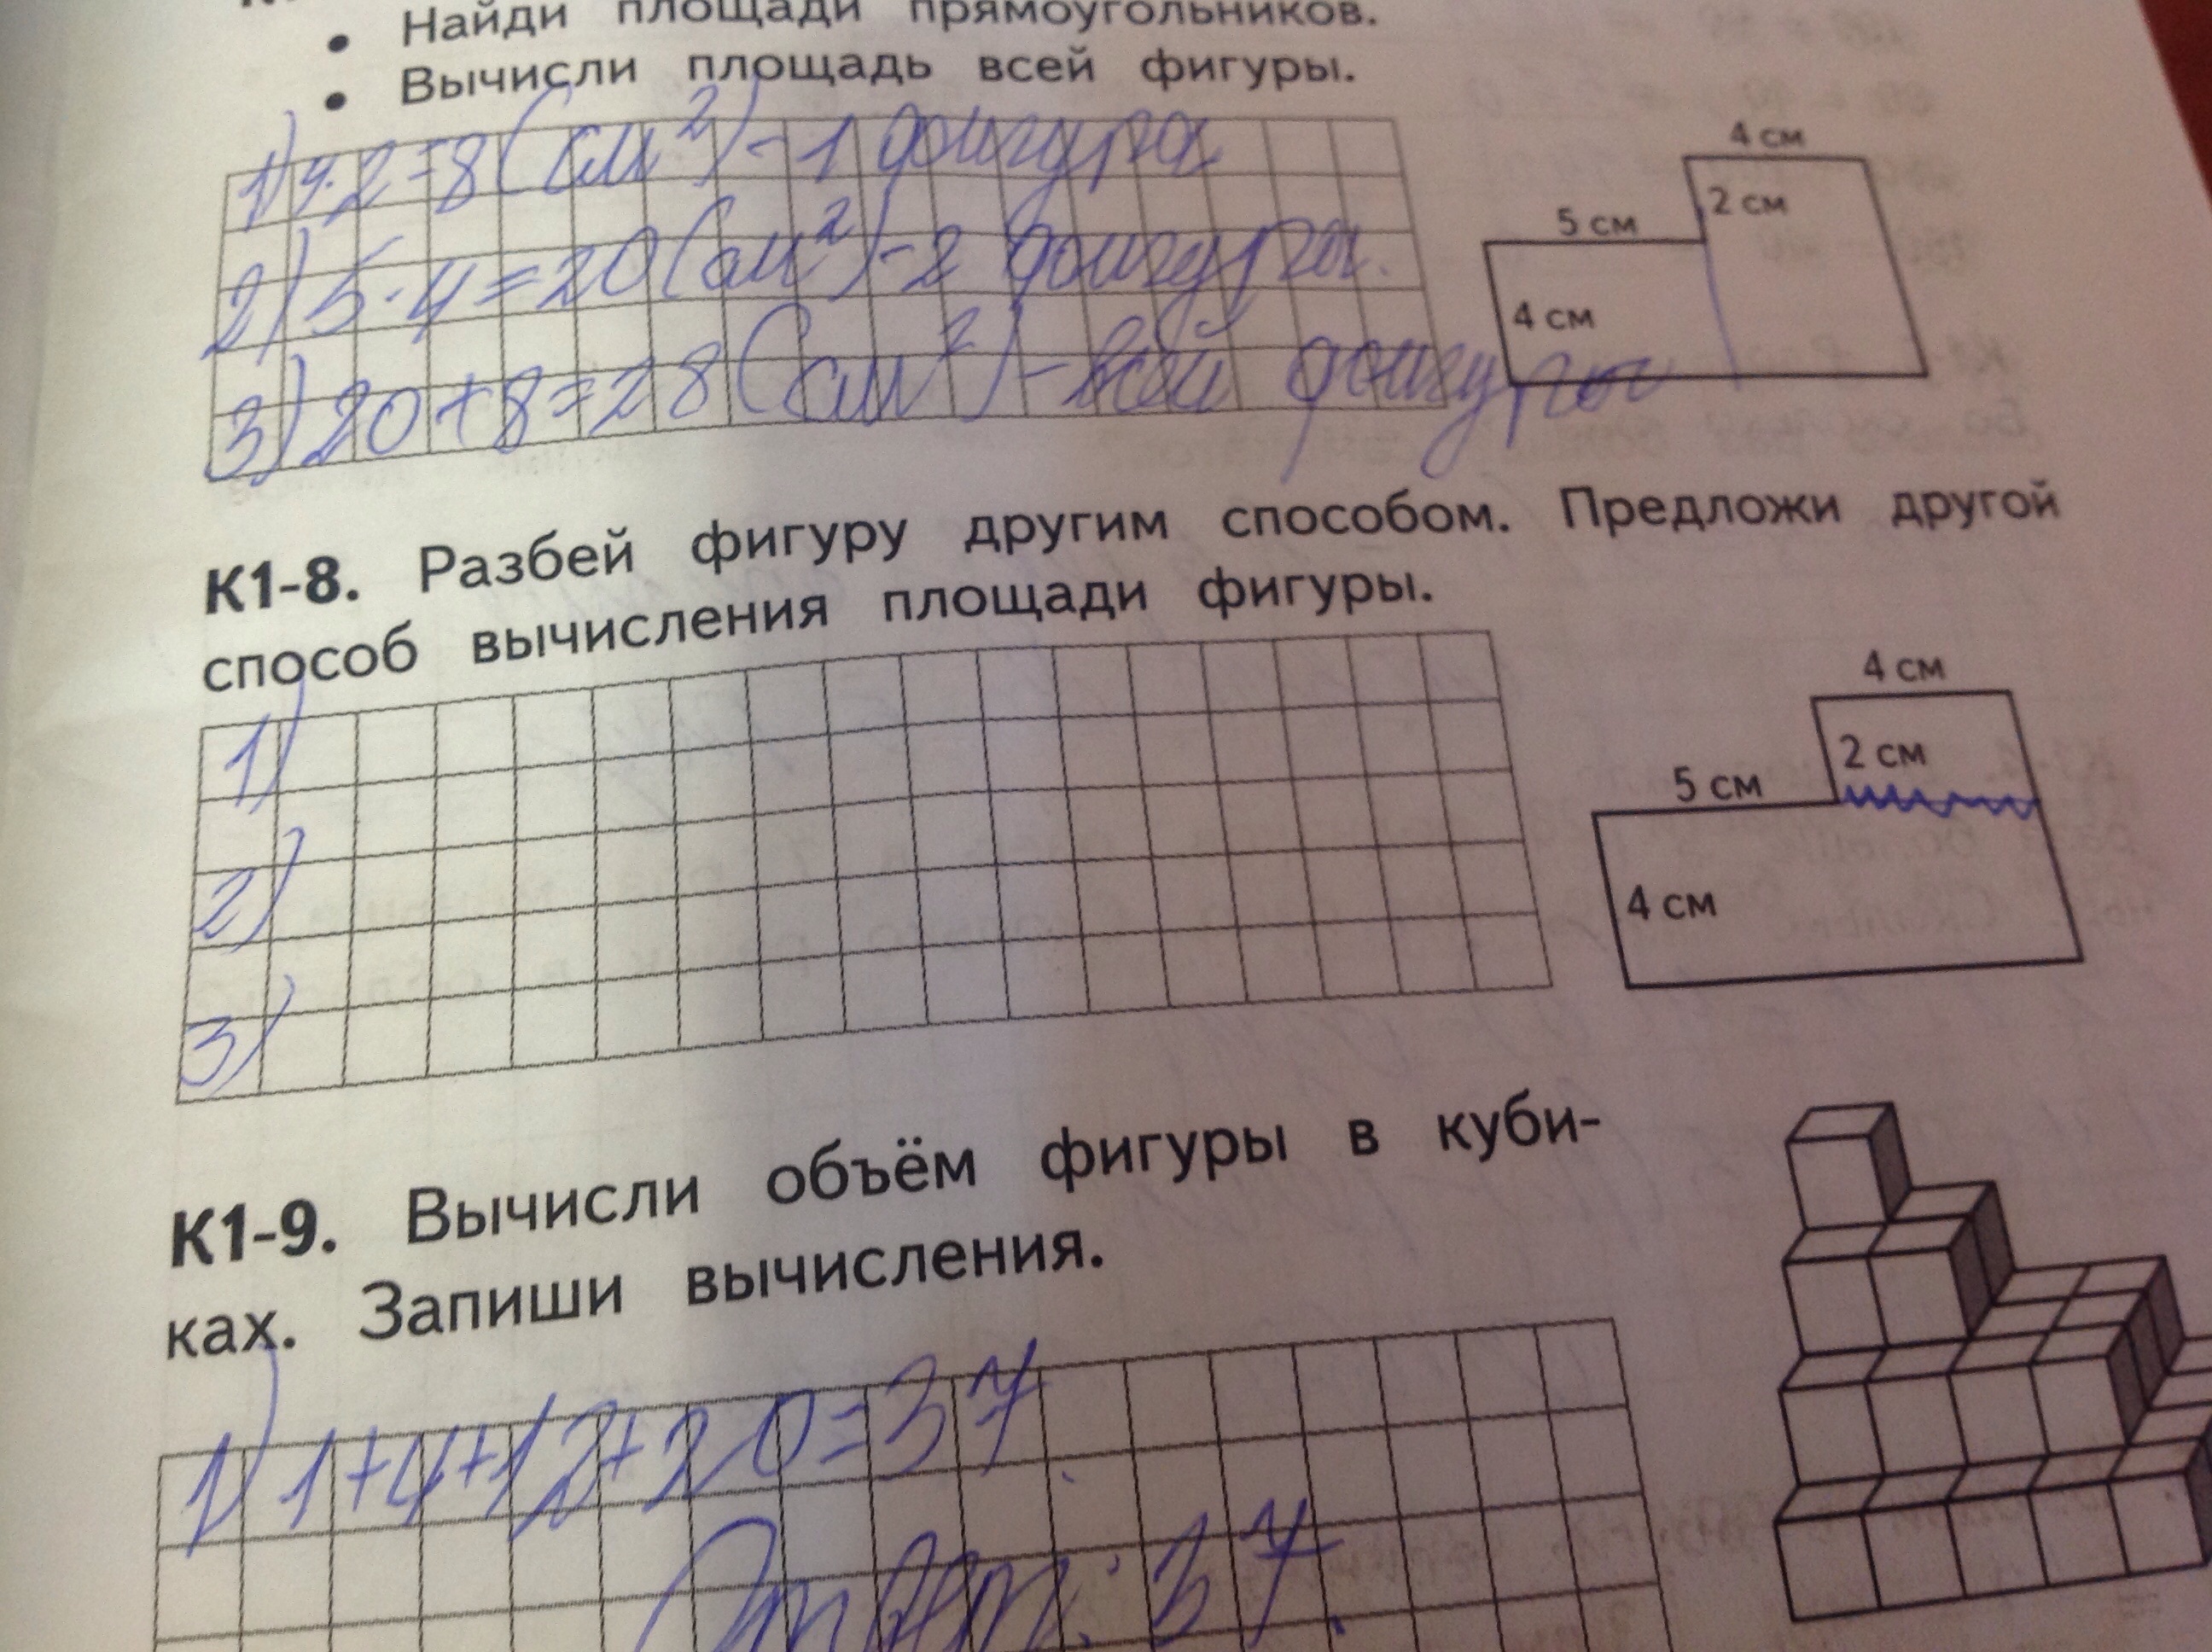 • Найди площади прямоугольников.
• Вычисли площадь всей фигуры.
1) 4·2=8(см²)-1 фигура
2) 5·4=20(см²)-2 фигуры.
3) 20+8=28(см²)-всей фигуры
4 см
2 см
5 см
4 см
К1-8. Разбей фигуру другим способом. Предложи другой
способ вычисления площади фигуры.
1)
2)
3)
4 см
2 см
5 см
4 см
К1-9. Вычисли объём фигуры в куби-
ках. Запиши вычисления.
1) 1+4+12+20=37.
Ответ: 37.